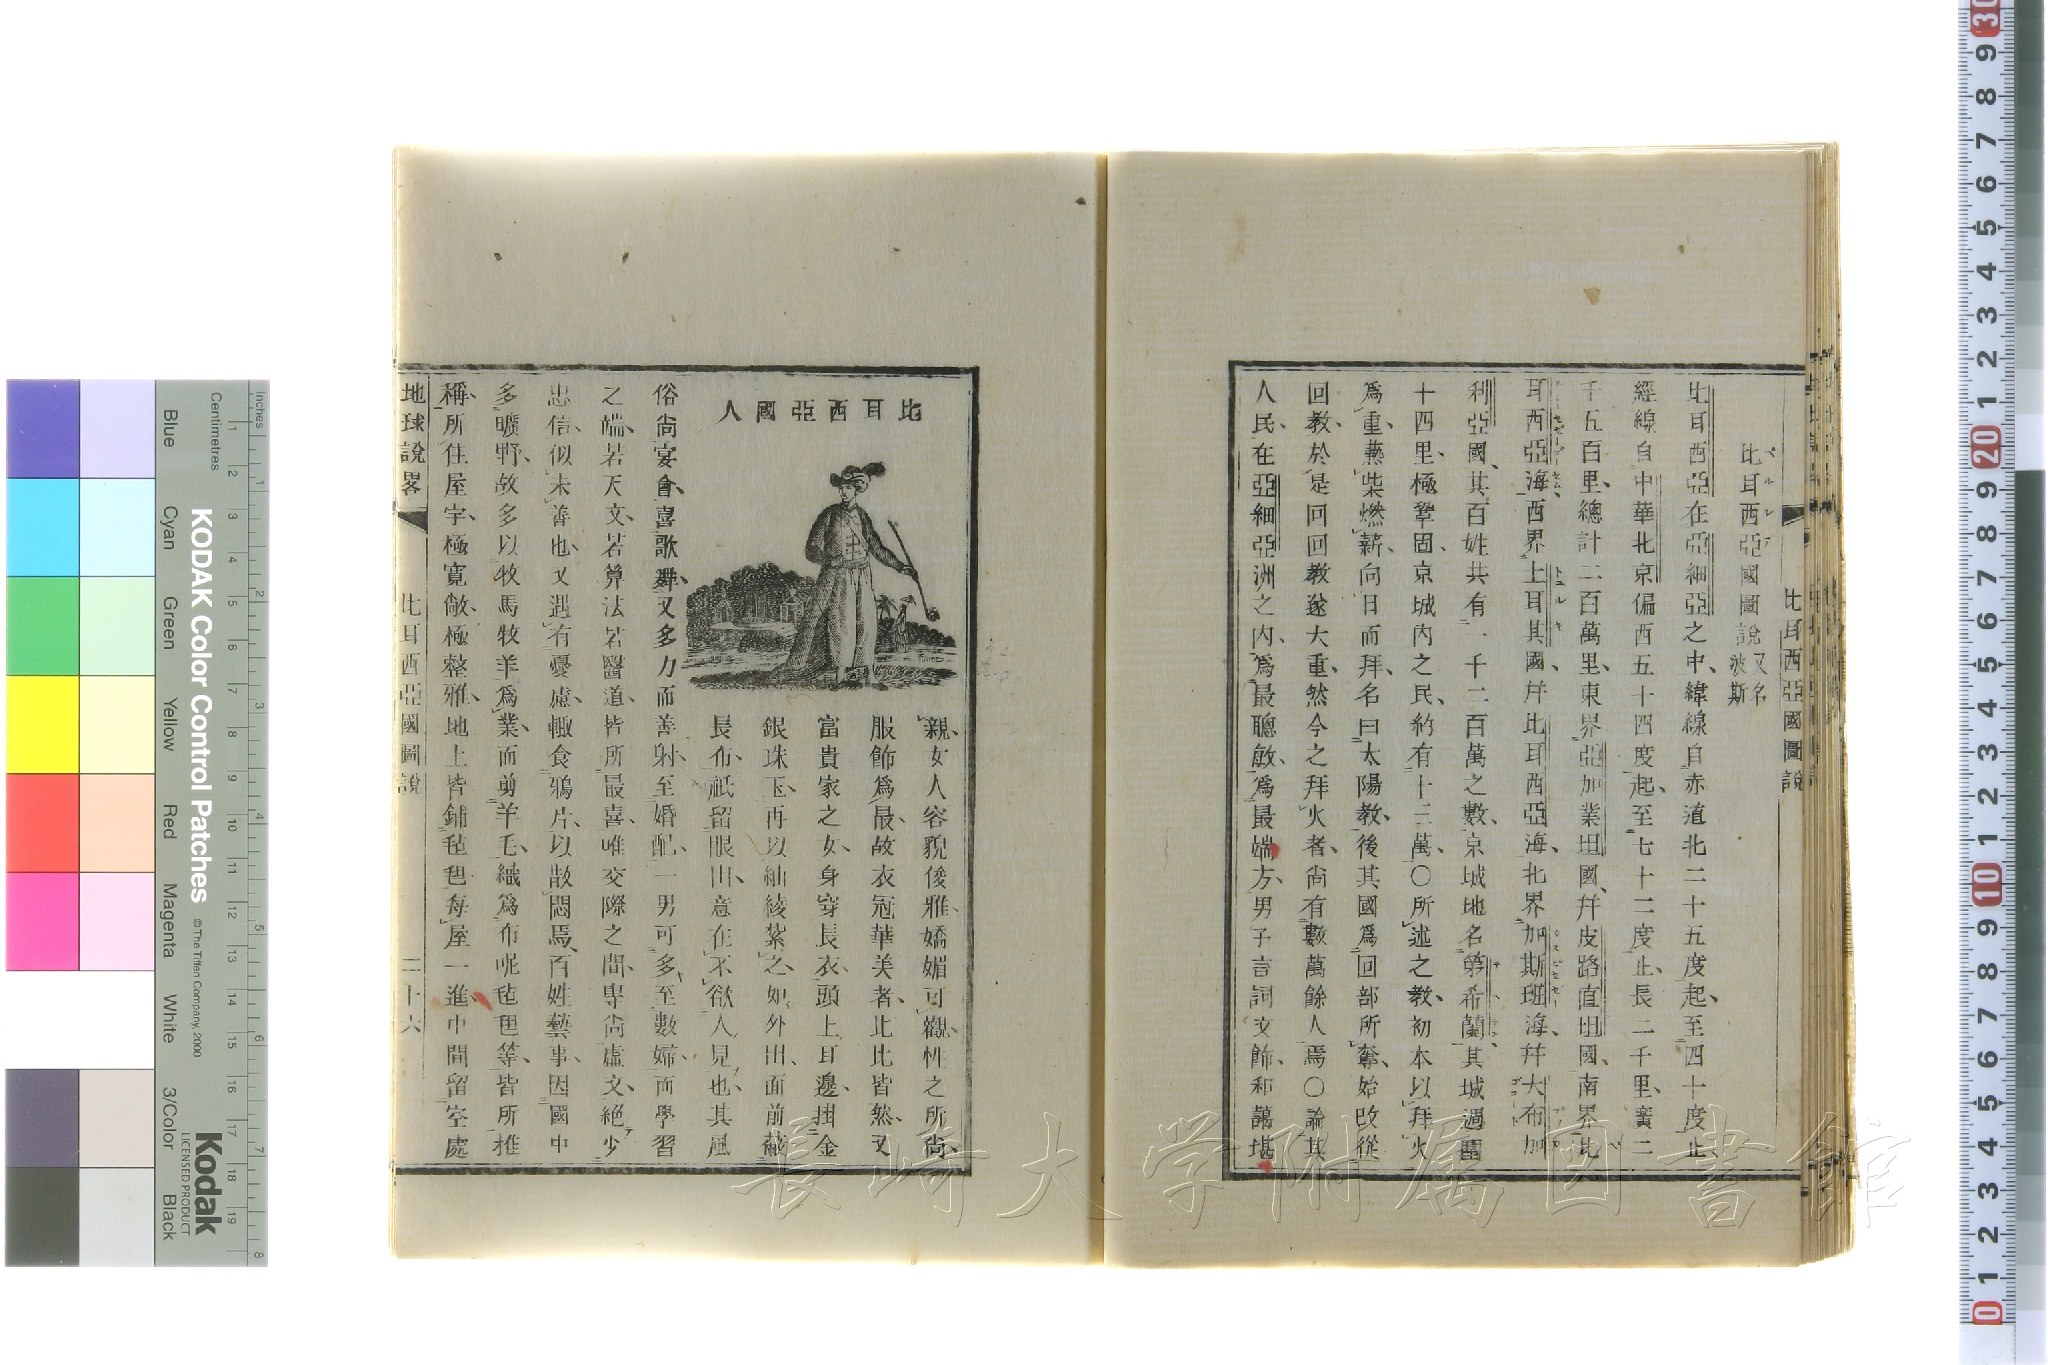 比耳西亞國圖說
比耳西亞國圖說 又名波斯
ペルシア
比耳西亞在亞細亞之中、緯線自赤道北二十五度起、至四十度止
經線自中華北京偏西五十四度起、至七十二度止、長二千里、寬二
千五百里、總計二百萬里、東界亞加業坦國、幷皮路直坦國、南界比
耳西亞海、西界土耳其國、幷比耳西亞海、北界加斯班海、幷大布加
利亞國、其百姓共有一千二百萬之數、京城地名第希蘭、其城週圍
十四里、極鞏固、京城内之民、約有十二萬、〇所述之教、初本以拜火
爲重、燕柴燃薪、向日而拜、名曰太陽教、後其國爲回部所奪、始改從
回教、於是回回教遂大重、然今之拜火者、尚有數萬餘人焉〇論其
人民、在亞細亞洲之内、爲最聰敏、爲最端方、男子言詞文飾、和藹堪
比耳西亞國人
親、女人容貌俊雅、嬌媚可觀、性之所尚
服飾爲最、故衣冠華美者、比比皆然、又
富貴家之女、身穿長衣、頭上耳邊、掛金
銀珠玉、再以紬綾紮之、如外出、面前蔽
長布、祇留眼出、意在不欲人見也、其風
俗尚宴會、喜歌舞、又多力而善射、至婚配、一男可多至數婦、而學習
之端、若天文、若算法、若醫道、皆所最喜、唯交際之間、專尚虛文、絕少
忠信、似未善也、又遇有憂慮、輙食鴉片、以散悶焉、百姓藝事、因國中
多曠野、故多以牧馬牧羊爲業、而剪羊毛、織爲布呢毡毯等、皆所推
稱、所住屋宇、極寬敞、極整雅、地上皆鋪毡毯、每屋一進、中間留空處
地球說畧
比耳西亞國圖說
二十六
長崎大学附属図書館
KODAK Color Control Patches
© The Tiffen Company, 2000
Kodak
LICENSED PRODUCT
inches
Centimetres
Blue
Cyan
Green
Yellow
Red
Magenta
White
3/Color
Black